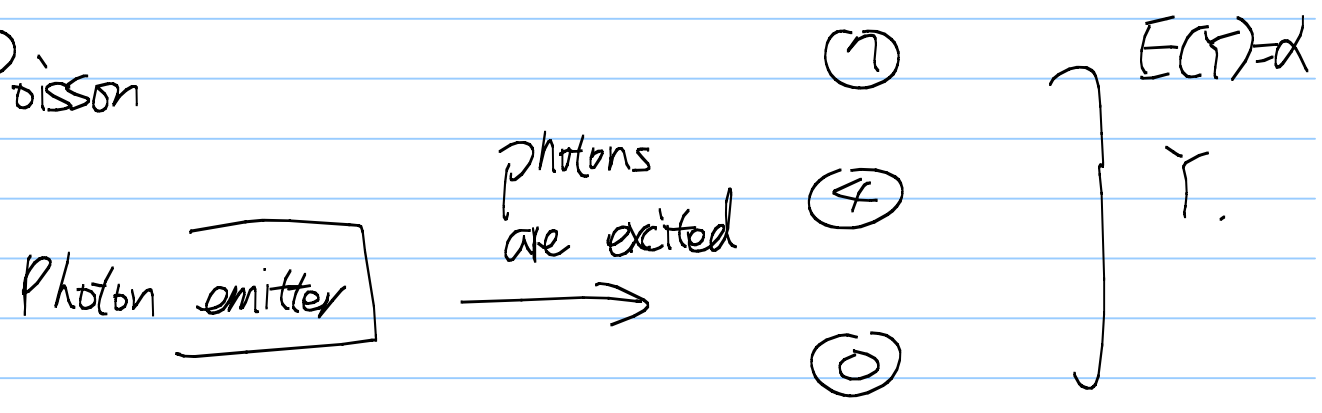 Poisson
Photon emitter
photons
are excited
7
4
0
E(Y)=α
Y.